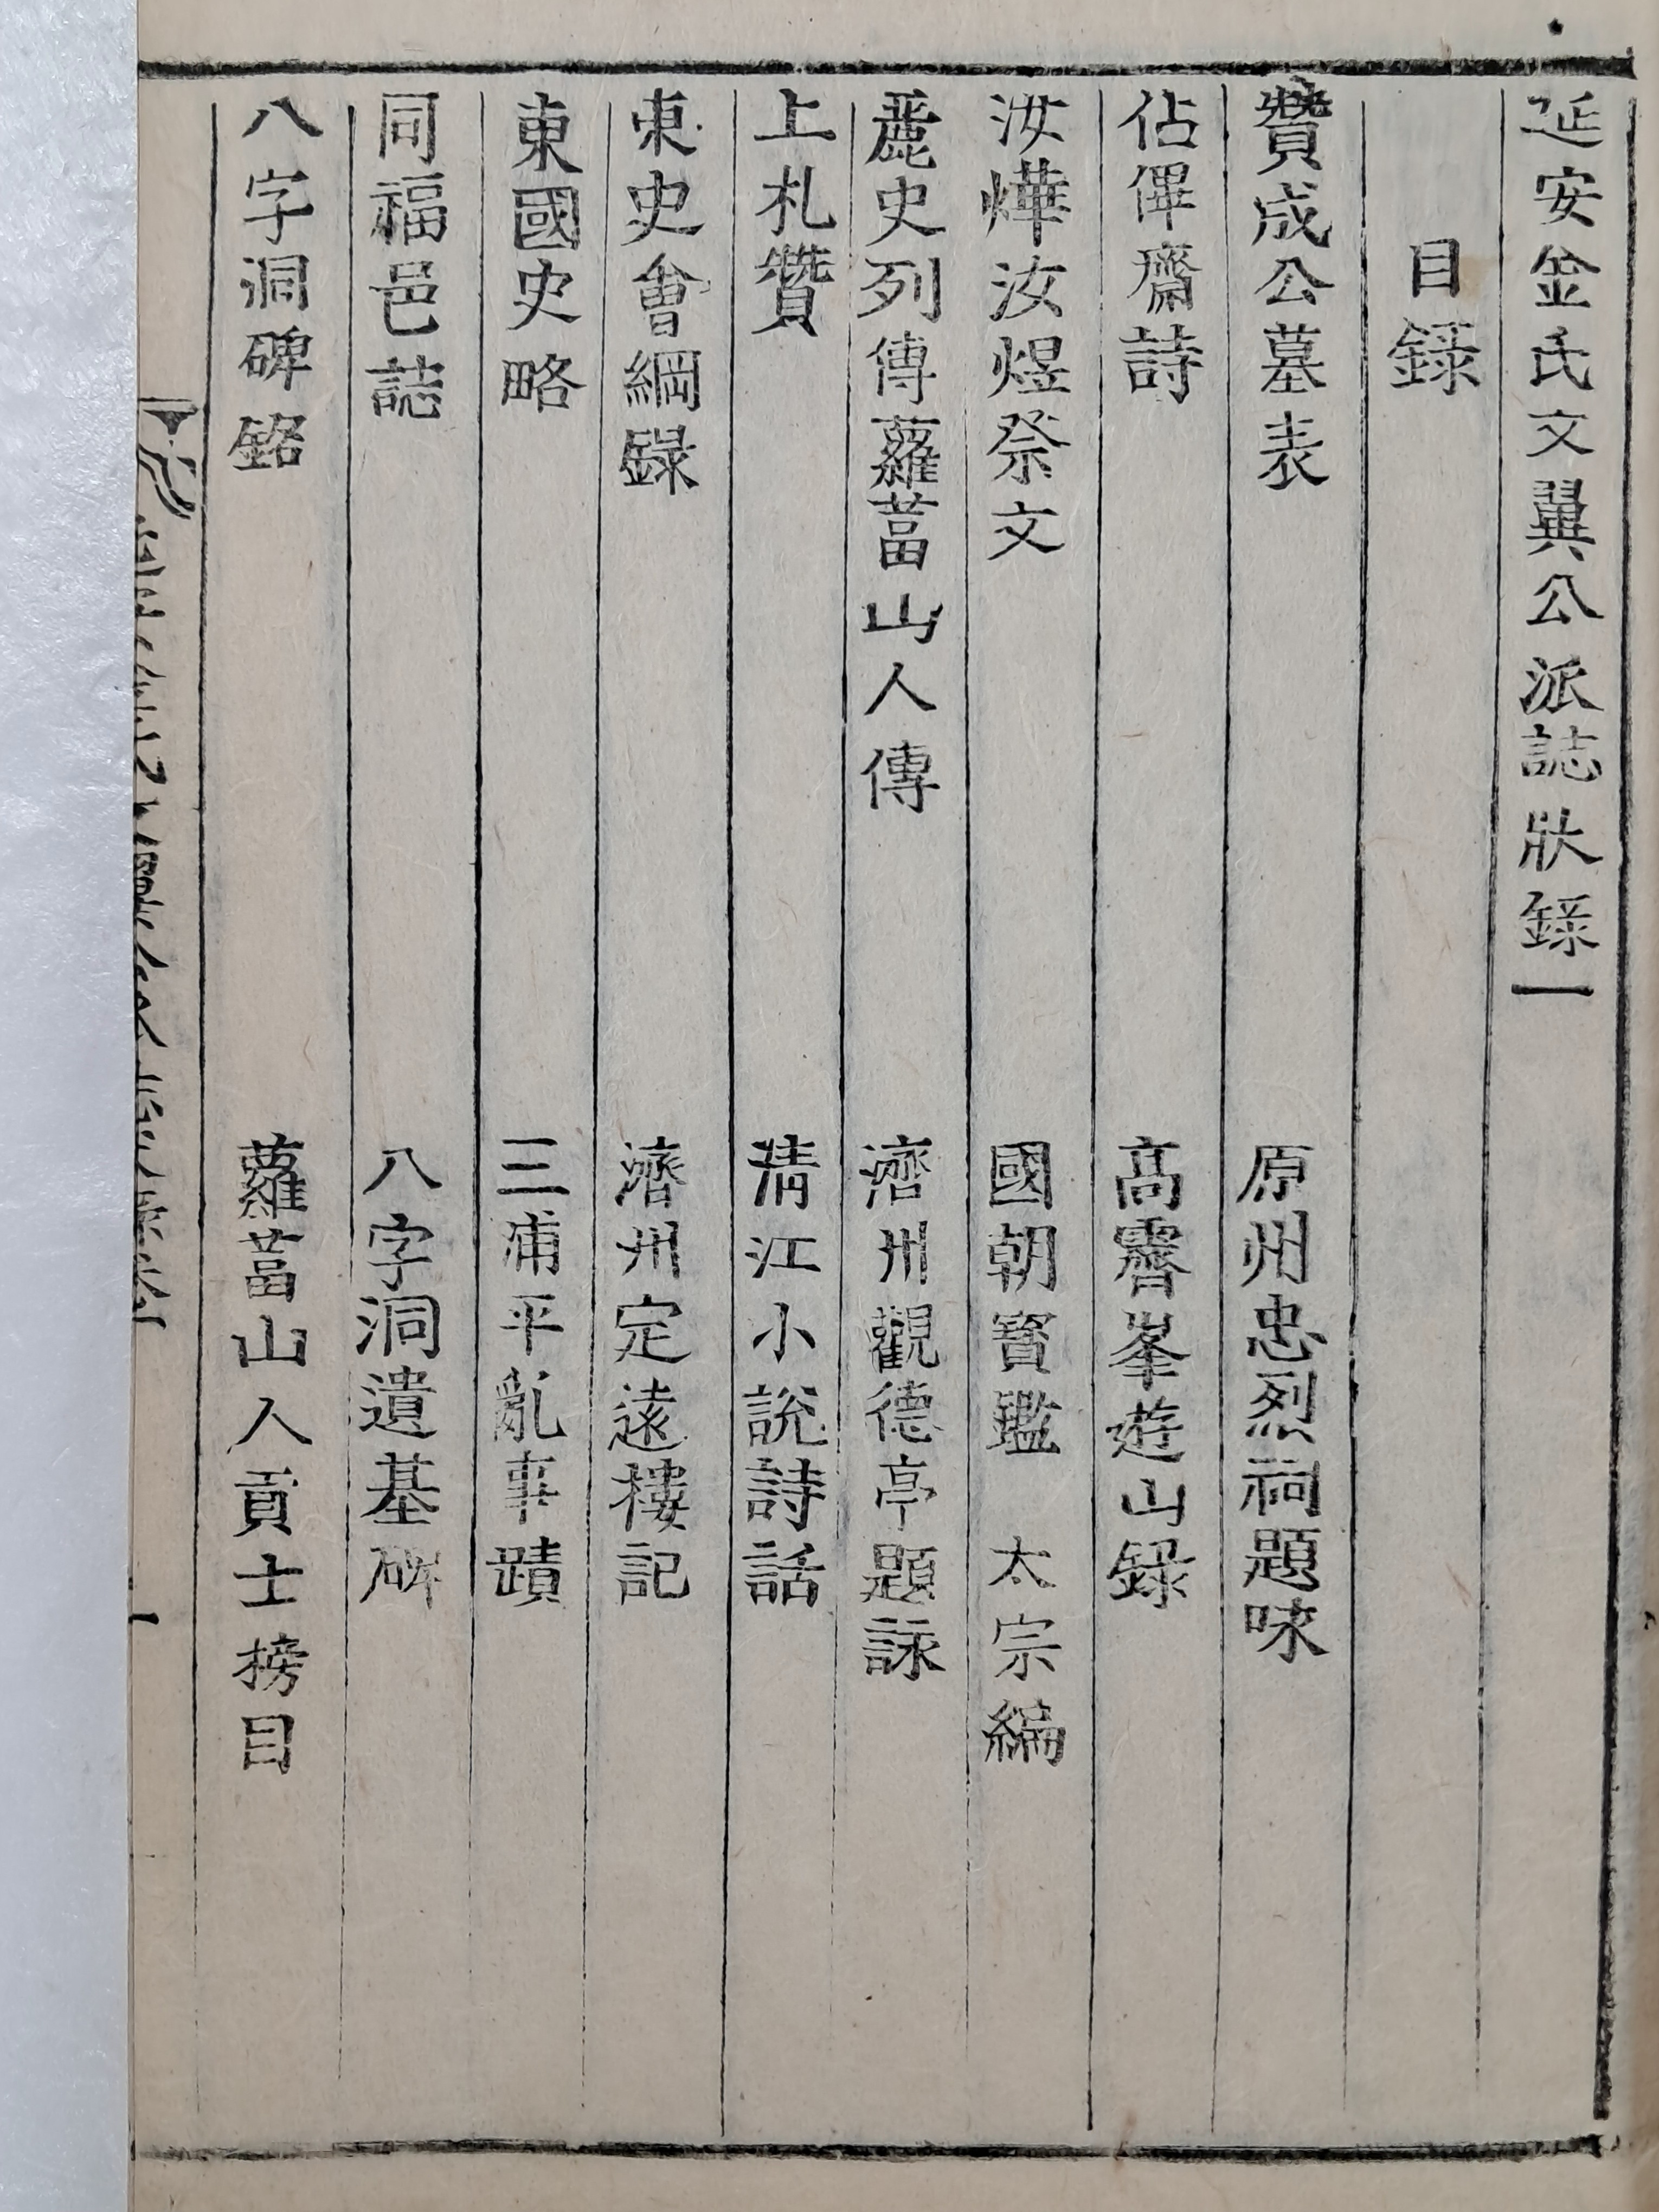 延安金氏文翼公派誌狀錄一
目錄
贊成公墓表 原州忠烈祠題咏
佔㑀齋詩 高霽峯遊山錄
汝燁汝煜祭文 國朝寶鑑 太宗編
麗史列傳蘿葍山人傳 濟州觀德亭題詠
上札贊 淸江小說詩話
東史會綱錄 濟州定遠樓記
東國史略 三浦平亂事蹟
同福邑誌 八字洞遺基碑
八字洞碑銘 蘿葍山人貢士榜目